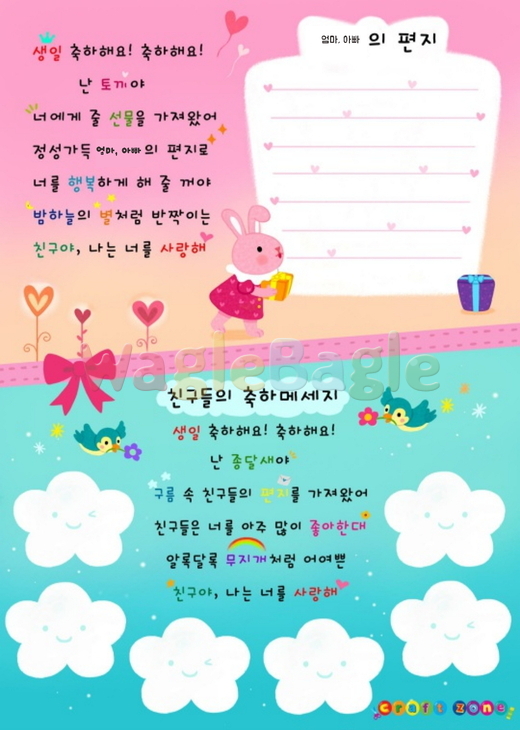 생일 축하해요! 축하해요!
난 토끼야
너에게 줄 선물을 가져왔어
정성가득 엄마, 아빠의 편지로
너를 행복하게 해 줄 꺼야
밤하늘의 별처럼 반짝이는
친구야, 나는 너를 사랑해
엄마, 아빠 의 편지
WagleBagle
친구들의 축하메세지
생일 축하해요! 축하해요!
난 종달새야
구름 속 친구들의 편지를 가져왔어
친구들은 너를 아주 많이 좋아한대
알록달록 무지개처럼 어여쁜
친구야, 나는 너를 사랑해
craft zone